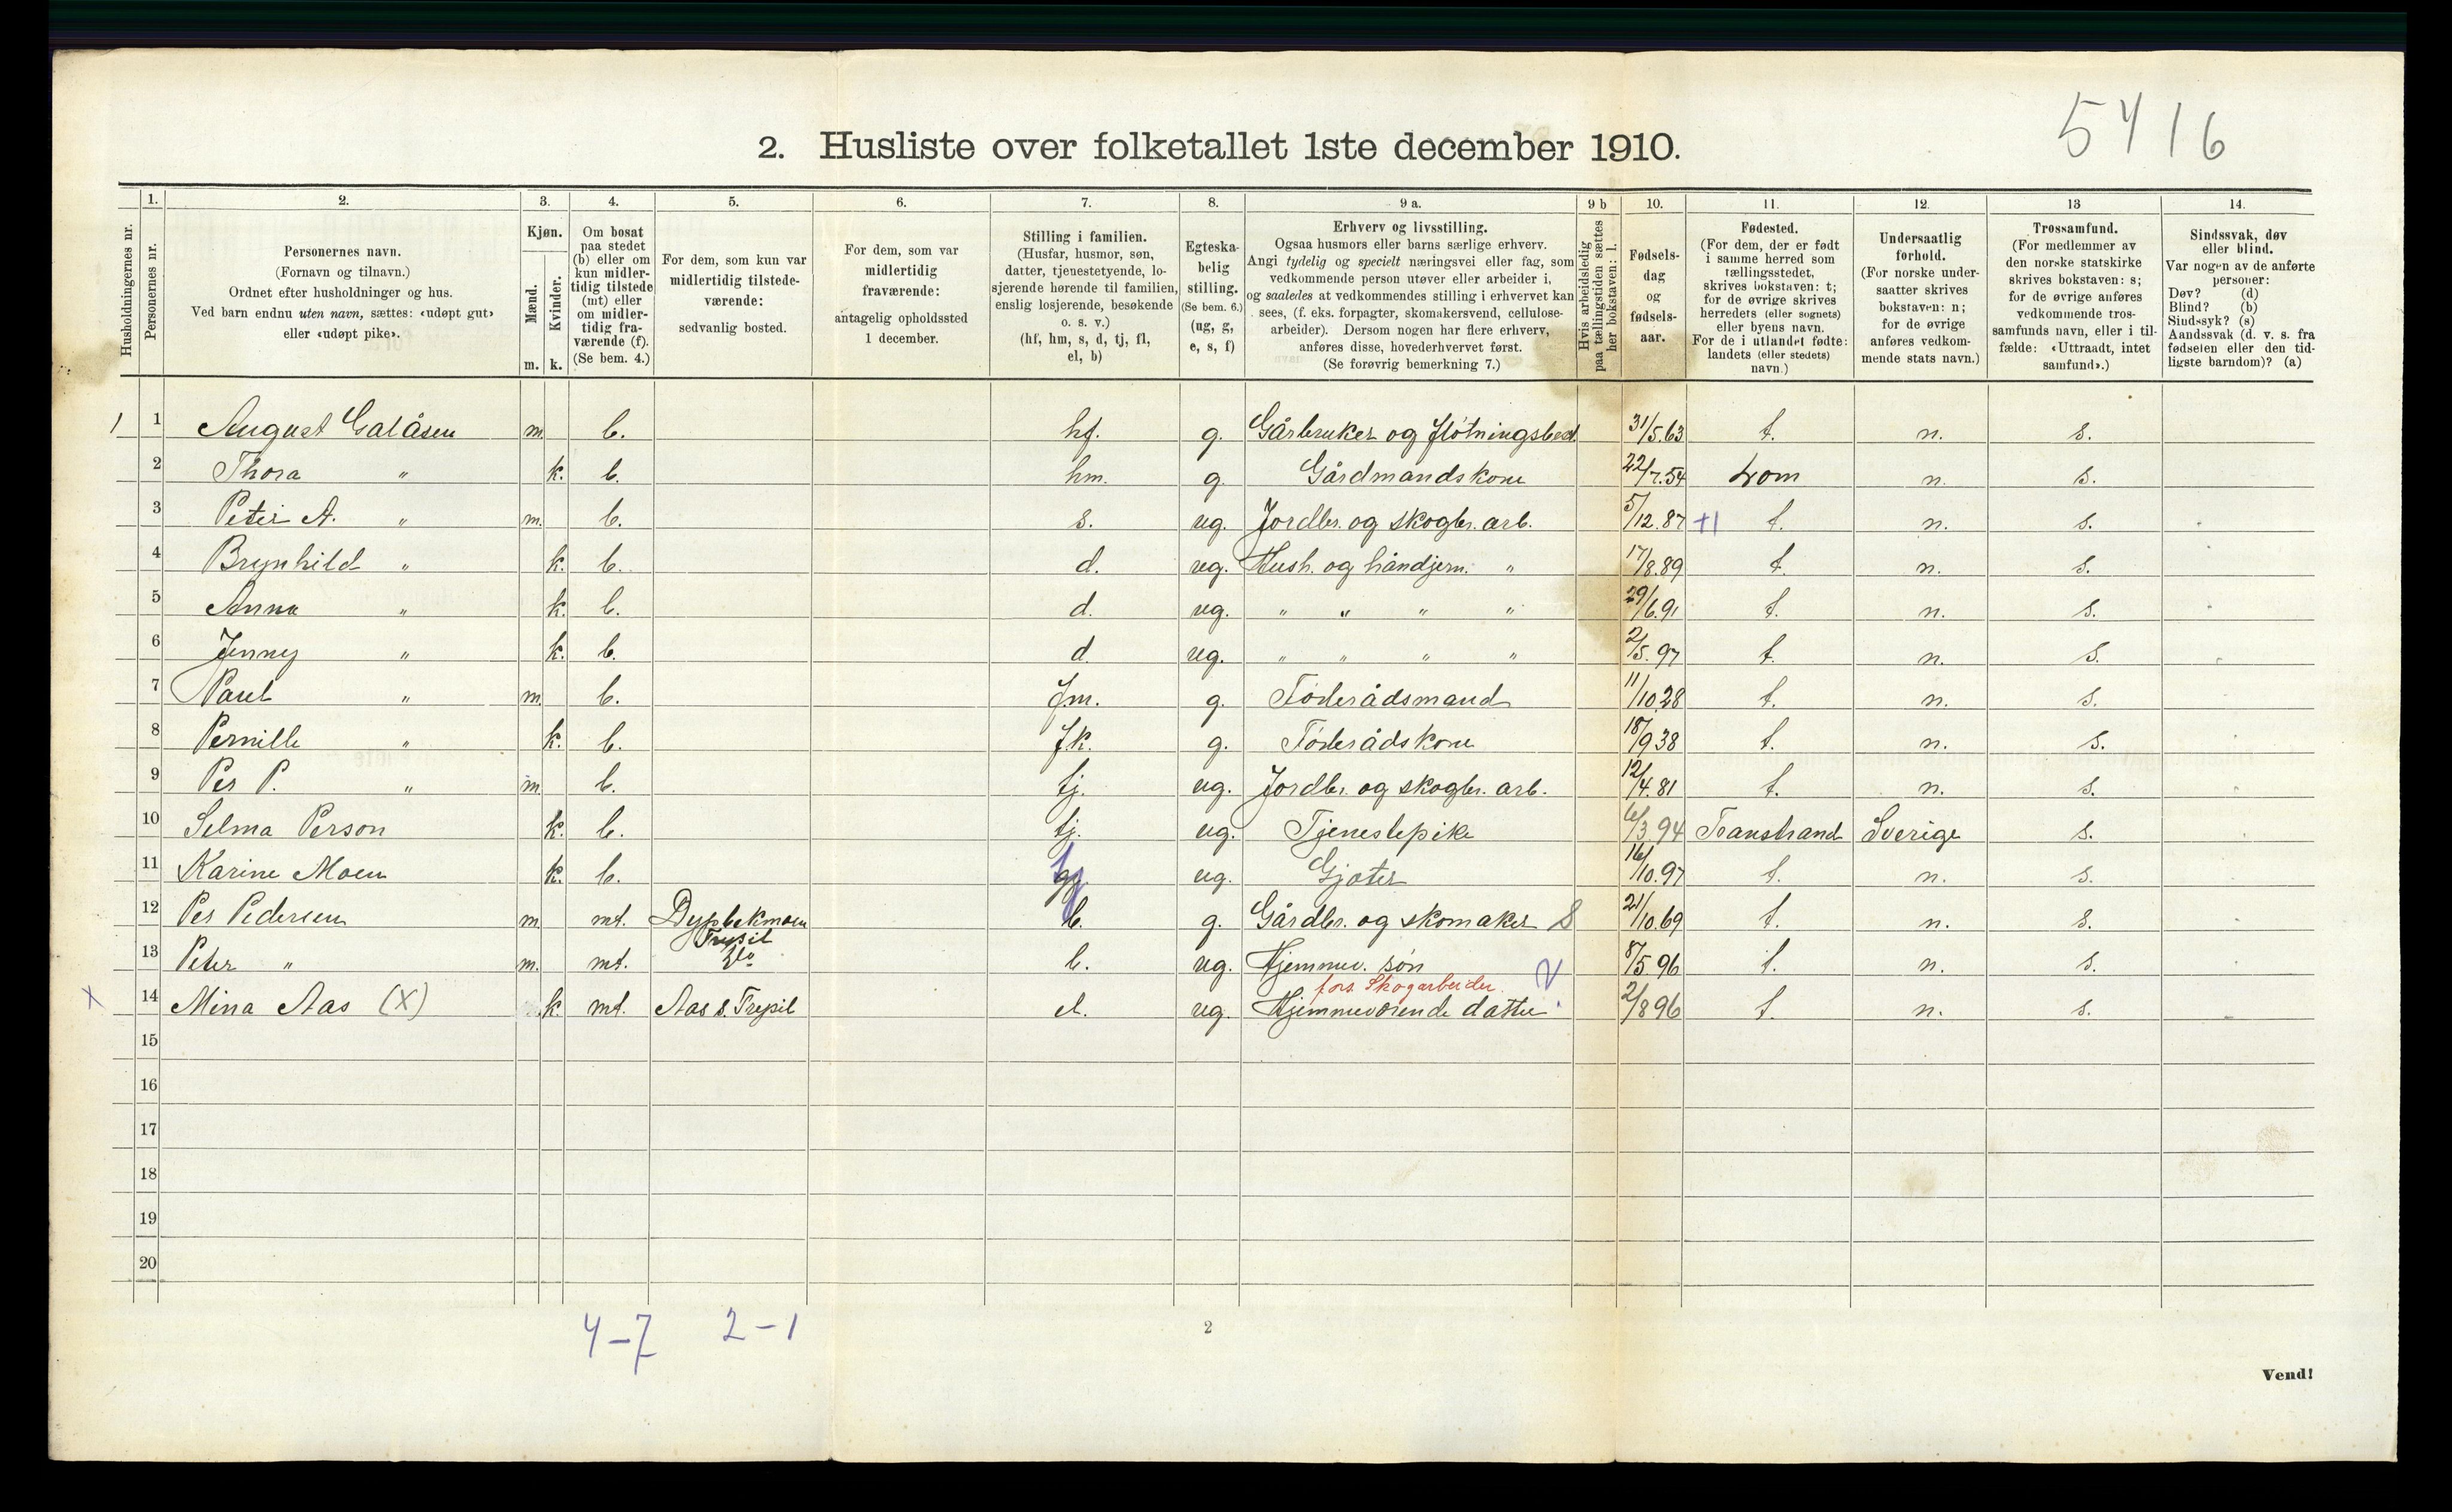 5416
2. Husliste over folketallet 1ste december 1910.
Husholdningernes nr.
1. Personernes nr.
2. Personernes navn. (Fornavn og tilnavn.) Ordnet efter husholdninger og hus. Ved barn endnu uten navn, sættes: «udøpt gut» eller «udøpt pike».
3. Kjøn. Mænd. m. Kvinder. k.
4. Om bosat paa stedet (b) eller om kun midler-tidig tilstede (mt) eller om midler-tidig fra-værende (f). (Se bem. 4.)
5. For dem, som kun var midlertidig tilstede-værende: sedvanlig bosted.
6. For dem, som var midlertidig fraværende: antagelig opholdssted 1 december.
7. Stilling i familien. (Husfar, husmor, søn, datter, tjenestetyende, lo-sjerende hørende til familien, enslig losjerende, besøkende o. s. v.) (hf, hm, s, d, tj, fl, el, b)
8. Egteska-belig stilling. (Se bem. 6.) (ug, g, e, s, f)
9 a. Erhverv og livsstilling. Ogsaa husmors eller barns særlige erhverv. Angi tydelig og specielt næringsvei eller fag, som vedkommende person utøver eller arbeider i, og saaledes at vedkommendes stilling i erhvervet kan sees, (f. eks. forpagter, skomakersvend, cellulose-arbeider). Dersom nogen har flere erhverv, anføres disse, hovederhvervet først. (Se forøvrig bemerkning 7.)
9 b Hvis arbeidsledig paa tællingstiden sættes her bokstaven: l.
10. Fødsels-dag og fødsels-aar.
11. Fødested. (For dem, der er født i samme herred som tællingsstedet, skrives bokstaven: t; for de øvrige skrives herredets (eller sognets) eller byens navn. For de i utlandet fødte: landets (eller stedets) navn.)
12. Undersaatlig forhold. (For norske under-saatter skrives bokstaven: n; for de øvrige anføres vedkom-mende stats navn.)
13 Trossamfund. (For medlemmer av den norske statskirke skrives bokstaven: s; for de øvrige anføres vedkommende tros-samfunds navn, eller i til-fælde: «Uttraadt, intet samfund».)
14. Sindssvak, døv eller blind. Var nogen av de anførte personer: Døv? (d) Blind? (b) Sindssyk? (s) Aandssvak (d. v. s. fra fødselen eller den tid-ligste barndom)? (a)
1 1 August Galåsen m. b. hf. g. Gårbruker og fløtningsbest. 31/5.63 t. n. s.
2 Thora " k. b. hm. g. Gårdmandskone 22/7.54 Lom n. s.
3 Peter A. " m. b. s. ug. Jordbr. og skogbr. arb. 5/12.87 +1 t. n. s.
4 Brynhild " k. b. d. ug. Hush. og håndjern. " 17/8.89 t. n. s.
5 Anna " k. b. d. ug. " " " " 29/6.91 t. n. s.
6 Jenny " k. b. d. ug. " " " " 2/5.97 t. n. s.
7 Paul " m. b. fm. g. Föderådsmand 11/10.28 t. n. s.
8 Pernille " k. b. fk. g. Föderådskone 18/9 38 t. n. s.
9 Per P. " m. b. tj. ug. Jordbr. og skogbr. arb. 12/4.81 t. n. s.
10 Selma Person k. b. tj. ug. Tjenestepike 6/3 94 Transtrand Sverige s.
11 Karine Moen k. b. tj ug. Gjæter 16/10.97 t. n. s.
12 Per Pedersen m. mt. Dypbekmoen Trysil b. g. Gårdbr. og skomaker S 21/10.69 t. n. s.
13 Peter " m. mt. do b. ug. Hjemmev. søn 8/5 96 t. n. s.
fors. Skogarbeider
x 14 Mina Aas (X) k. mt. Aas s. Trysil el. ug. Hjemmeværende datter 2/8 96 t. n. s.
15
16
17
18
19
20
4–7 2–1
2
Vend!